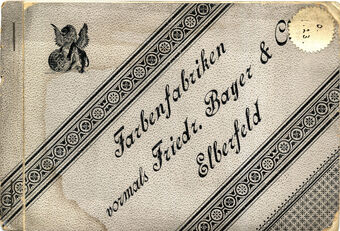 Farbenfabriken
vormals Friedr. Bayer & Co
Elberfeld